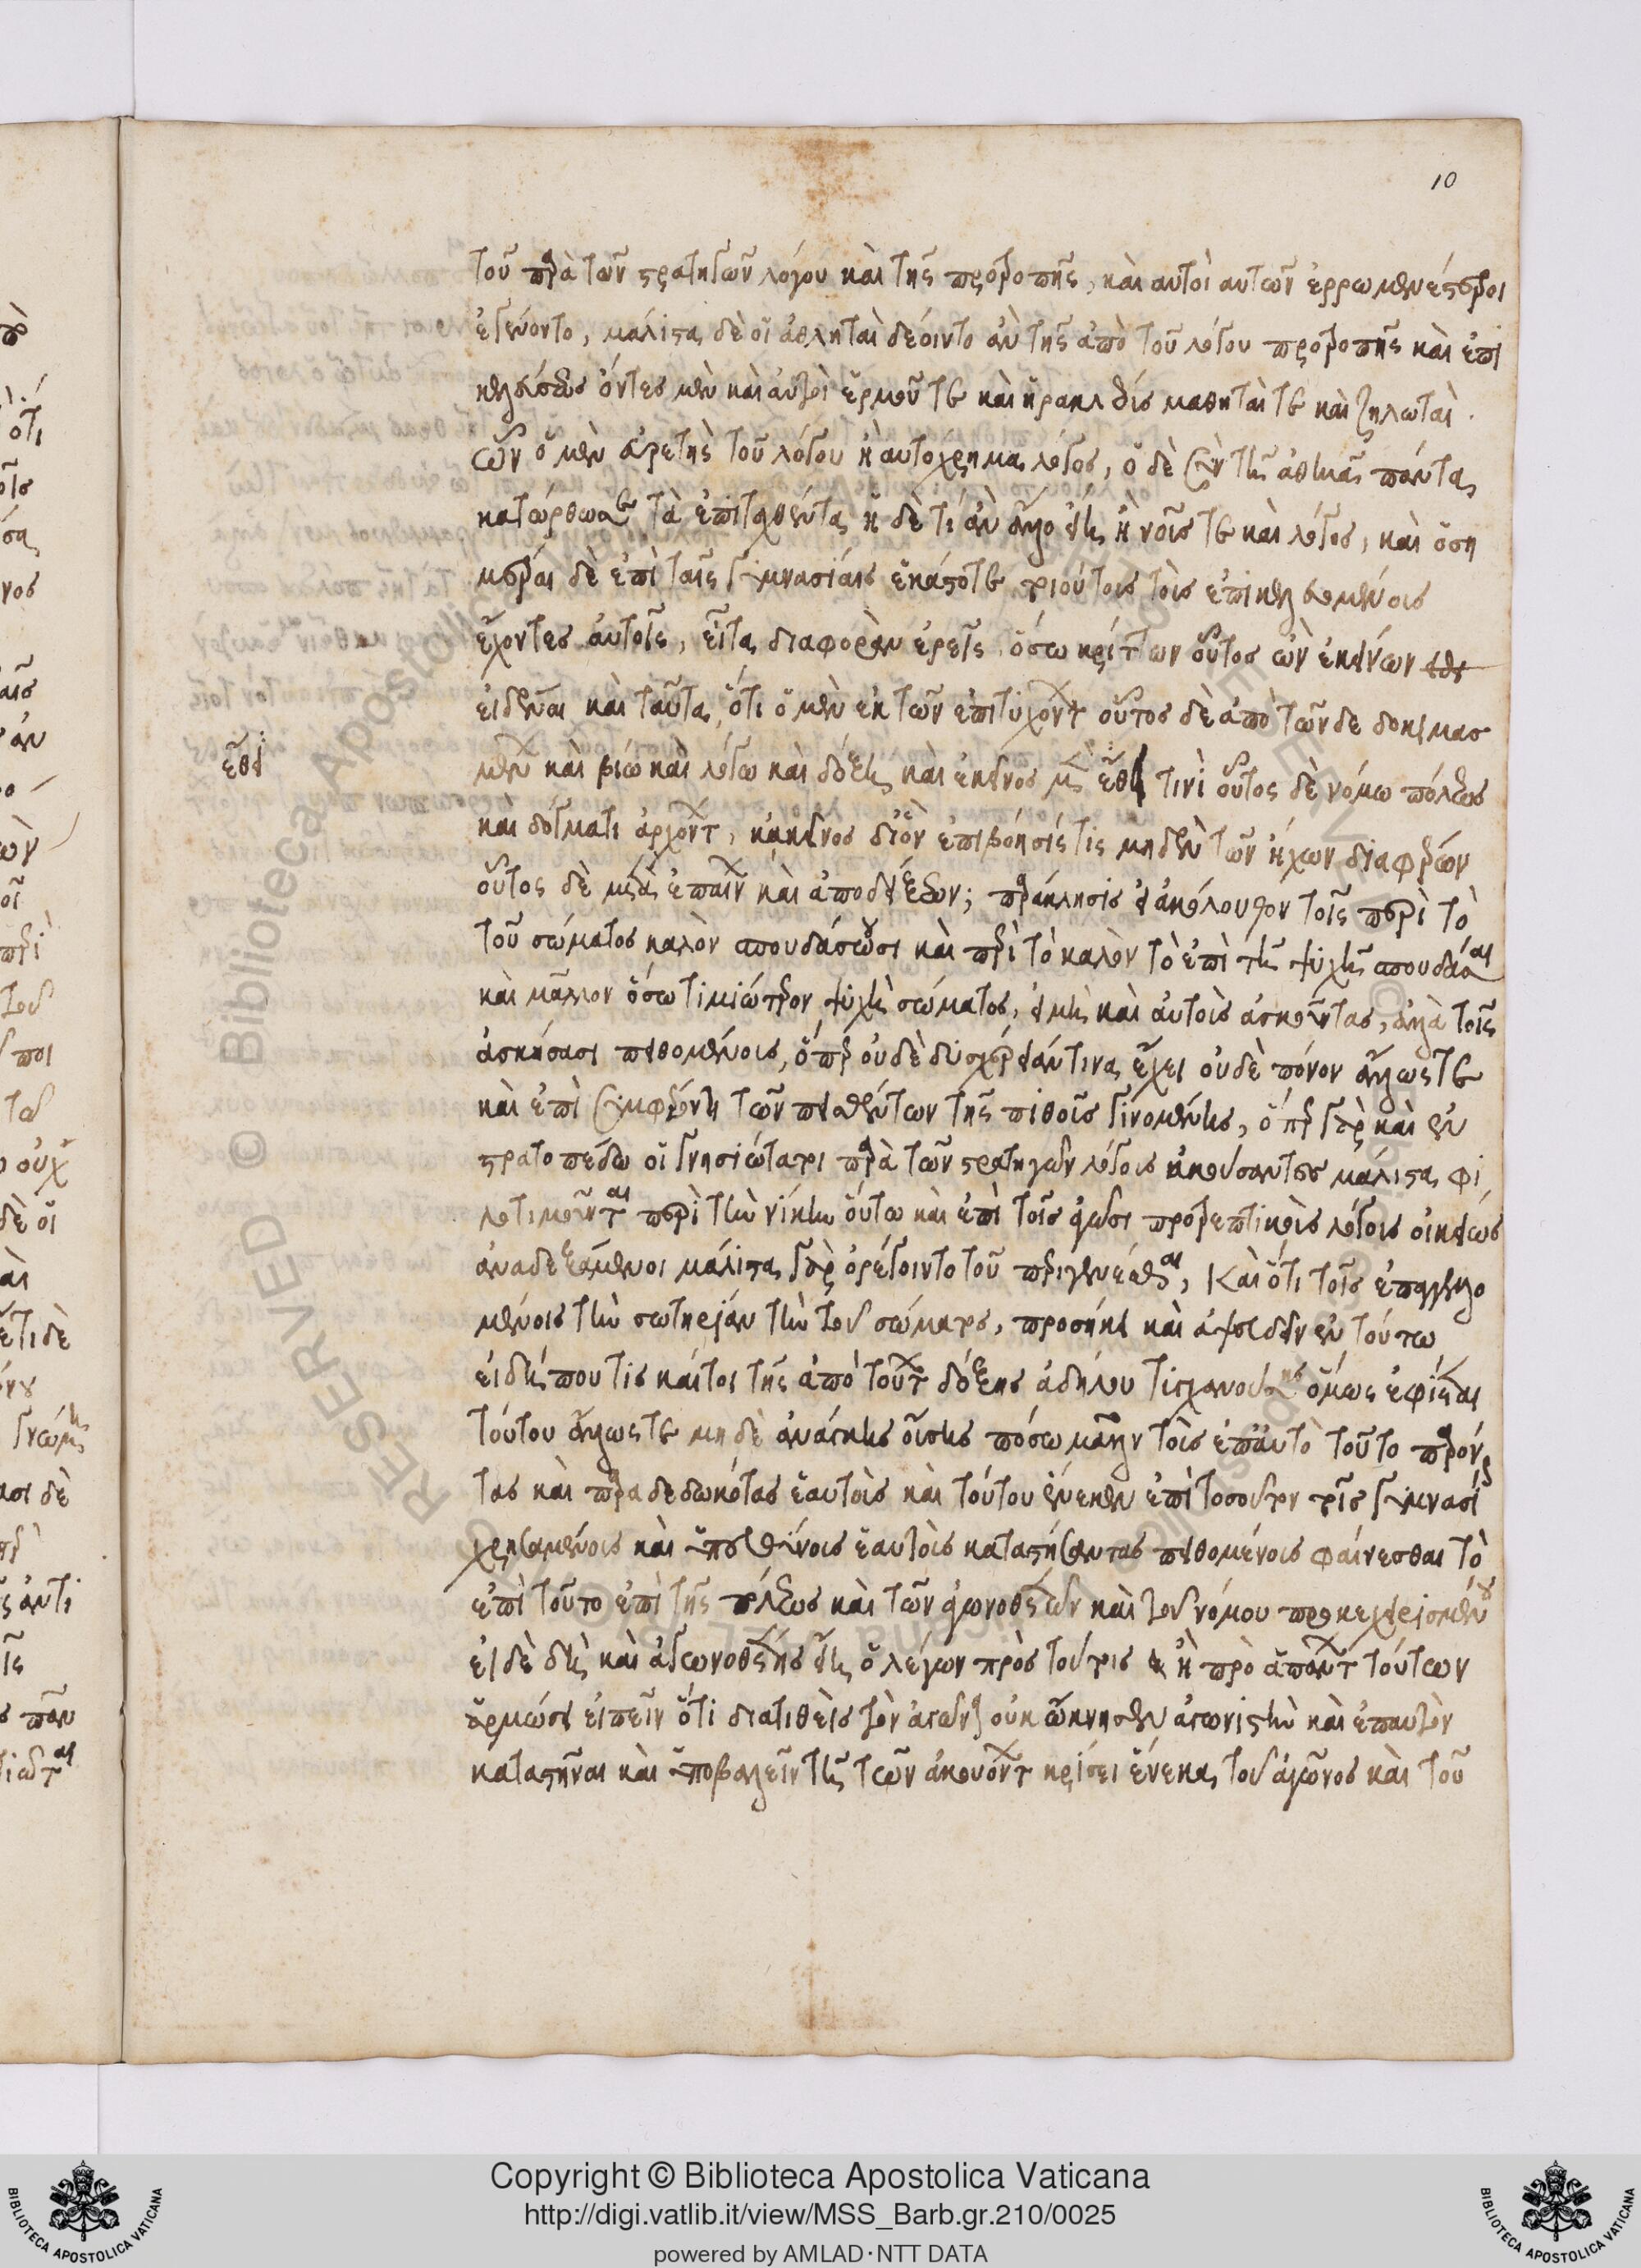 10
τοῦ παρὰ τῶν στρατηγῶν λόγου καὶ τῆς προτροπῆς, καὶ αὐτοὶ αὐτῶν ἐρρωμενέστεροι
ἐγένοντο, μάλιστα δὲ οἱ ἀθληταὶ δέοιντο ἂν τῆς ἀπὸ τοῦ λόγου προτροπῆς καὶ ἐπι
κελεύσεως ὄντες μὲν καὶ αὐτοὶ ἑρμοῦ τε καὶ ἡρακλέους μαθηταί τε καὶ ζηλωταὶ.
ὧν ὁ μὲν εὑρετὴς τοῦ λόγου ἢ αὐτόχρημα λόγος, ὁ δὲ σὺν τῇ ἀθηνᾷ πάντα
κατώρθωσε τὰ ἐπιταχθέντα ἡ δὲ τί ἂν ἄλλο εἴη ἢ νοῦς τε καὶ λόγος, καὶ ὅση
μέραι δὲ ἐπὶ ταῖς γυμνασίαις ἑκάστοτε τοιούτοις τοῖς ἐπικελευομένοις
ἔχοντες αὐτοῖς, εἶτα διαφορὰν ἐρεῖς ὅσω κρίττων οὗτος ὢν ἐκείνων
εἰδέναι καὶ ταῦτα, ὅτι ὁ μὲν ἐκ τῶν ἐπιτυχόντ οὗτος δὲ ἀπὸ τῶνδε δοκιμασ
μεν καὶ βίω καὶ λόγω καὶ δόξη καὶ ἐκεῖνος μετὰ ἔθει τινὶ οὗτος δὲ νόμω πόλεως
ἔθει
καὶ δόγματι ἄρχοντ, κἀκεῖνος δι᾽ ὃν ἐπιβόησίς τις μηδὲν τῶν ἤχων διαφέρων
οὗτος δὲ μετὰ ἐπαίν καὶ ἀποδείξεων; παράκλησις εἰ ἀκόλουθον τοῖς περὶ τὸ
τοῦ σώματος καλὸν σπουδάσουσι καὶ περὶ τὸ καλὸν τὸ ἐπὶ τῇ ψυχῇ σπουδάσαι
καὶ μᾶλλον ὅσω τιμιώτερον ψυχὴ σώματος, εἰ μὴ καὶ αὐτοὶς ἀσκοῦντας, ἀλλὰ τοῖς
ἀσκήσασι πειθομένοις, ὅπερ οὐδὲ δυσχέρειάν τινα ἔχει οὐδὲ πόνον ἄλλως τε
καὶ ἐπὶ συμφέροντι τῶν πεισθέντων τῆς πιθοῦς γινομένης, ὅπερ γὰρ καὶ ἐν
στρατοπέδω οἱ γνησιώτατοι παρὰ τῶν στρατηγῶν λόγοις ἀκούσαντες μάλιστα φι
λοτιμοῦνται περὶ τὴν νίκην οὕτω καὶ ἐπὶ τοῖς ἀγῶσι προτρεπτικοὶς λόγοις οἰκείως
ἀναδεξάμενοι μάλιστα γὰρ ὀρέγοιντο τοῦ περιγενέσθαι, Καὶ ὅτι τοῖς ἐπαγγελλο
μένοις τὴν σωτηρίαν τὴν τοῦ σώματος, προσήκει καὶ ἀψευδεῖν ἐν τούτω
εἰ δή που τις καίτοι τῆς ἀπὸ τούτ δόξης ἀδήλου τυγχανούσης ὅμως ἐφίεται
τούτου ἄλλως τε μηδὲ ἀνάγκης οὔσης πόσω μᾶλλον τοῖς ἐπ᾽ αὐτὸ τοῦτο παρόν
τας καὶ παραδεδωκότας ἑαυτοὶς καὶ τούτου ἕνεκεν ἐπὶ τοσοῦτον τοῖς γυμνασί
χρησαμένοις καὶ ὑπευθύνοις ἑαυτοὶς καταστήσαντας πειθομένοις φαίνεσθαι τὸ
ἐπὶ τοῦτο ἐπὶ τῆς πόλεως καὶ τῶν ἀγωνοθετῶν καὶ τοῦ νόμου προκεχειρισμένου
εἰ δὲ δὴ καὶ ἀγωνοθέτης εἴη ὁ λέγων πρὸς τούτοις ἢ πρὸ ἁπάντ τούτων
ἁρμόσει εἰπεῖν ὅτι διατιθεὶς τὸν ἀγῶνα οὐκ ὤκνησεν ἀγωνιστὴν καὶ ἐπ᾽ αὐτὸν
καταστῆναι καὶ ὑποβαλεῖν τῇ τῶν ἀκουόντ κρίσει ἕνεκα τοῦ ἀγῶνος καὶ τοῦ
Copyright © Biblioteca Apostolica Vaticana
http://digi.vatlib.it/view/MSS_Barb.gr.210/0025
powered by AMLAD·NTT DATA